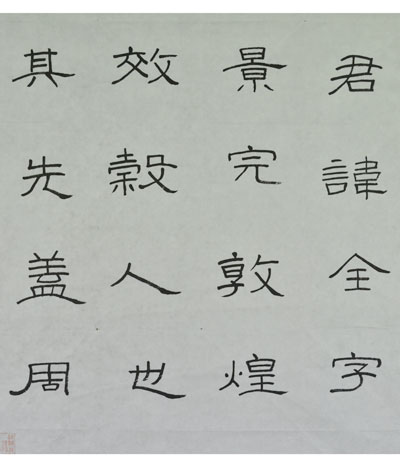 君諱全字
景完敦煌
效穀人也
其先蓋周